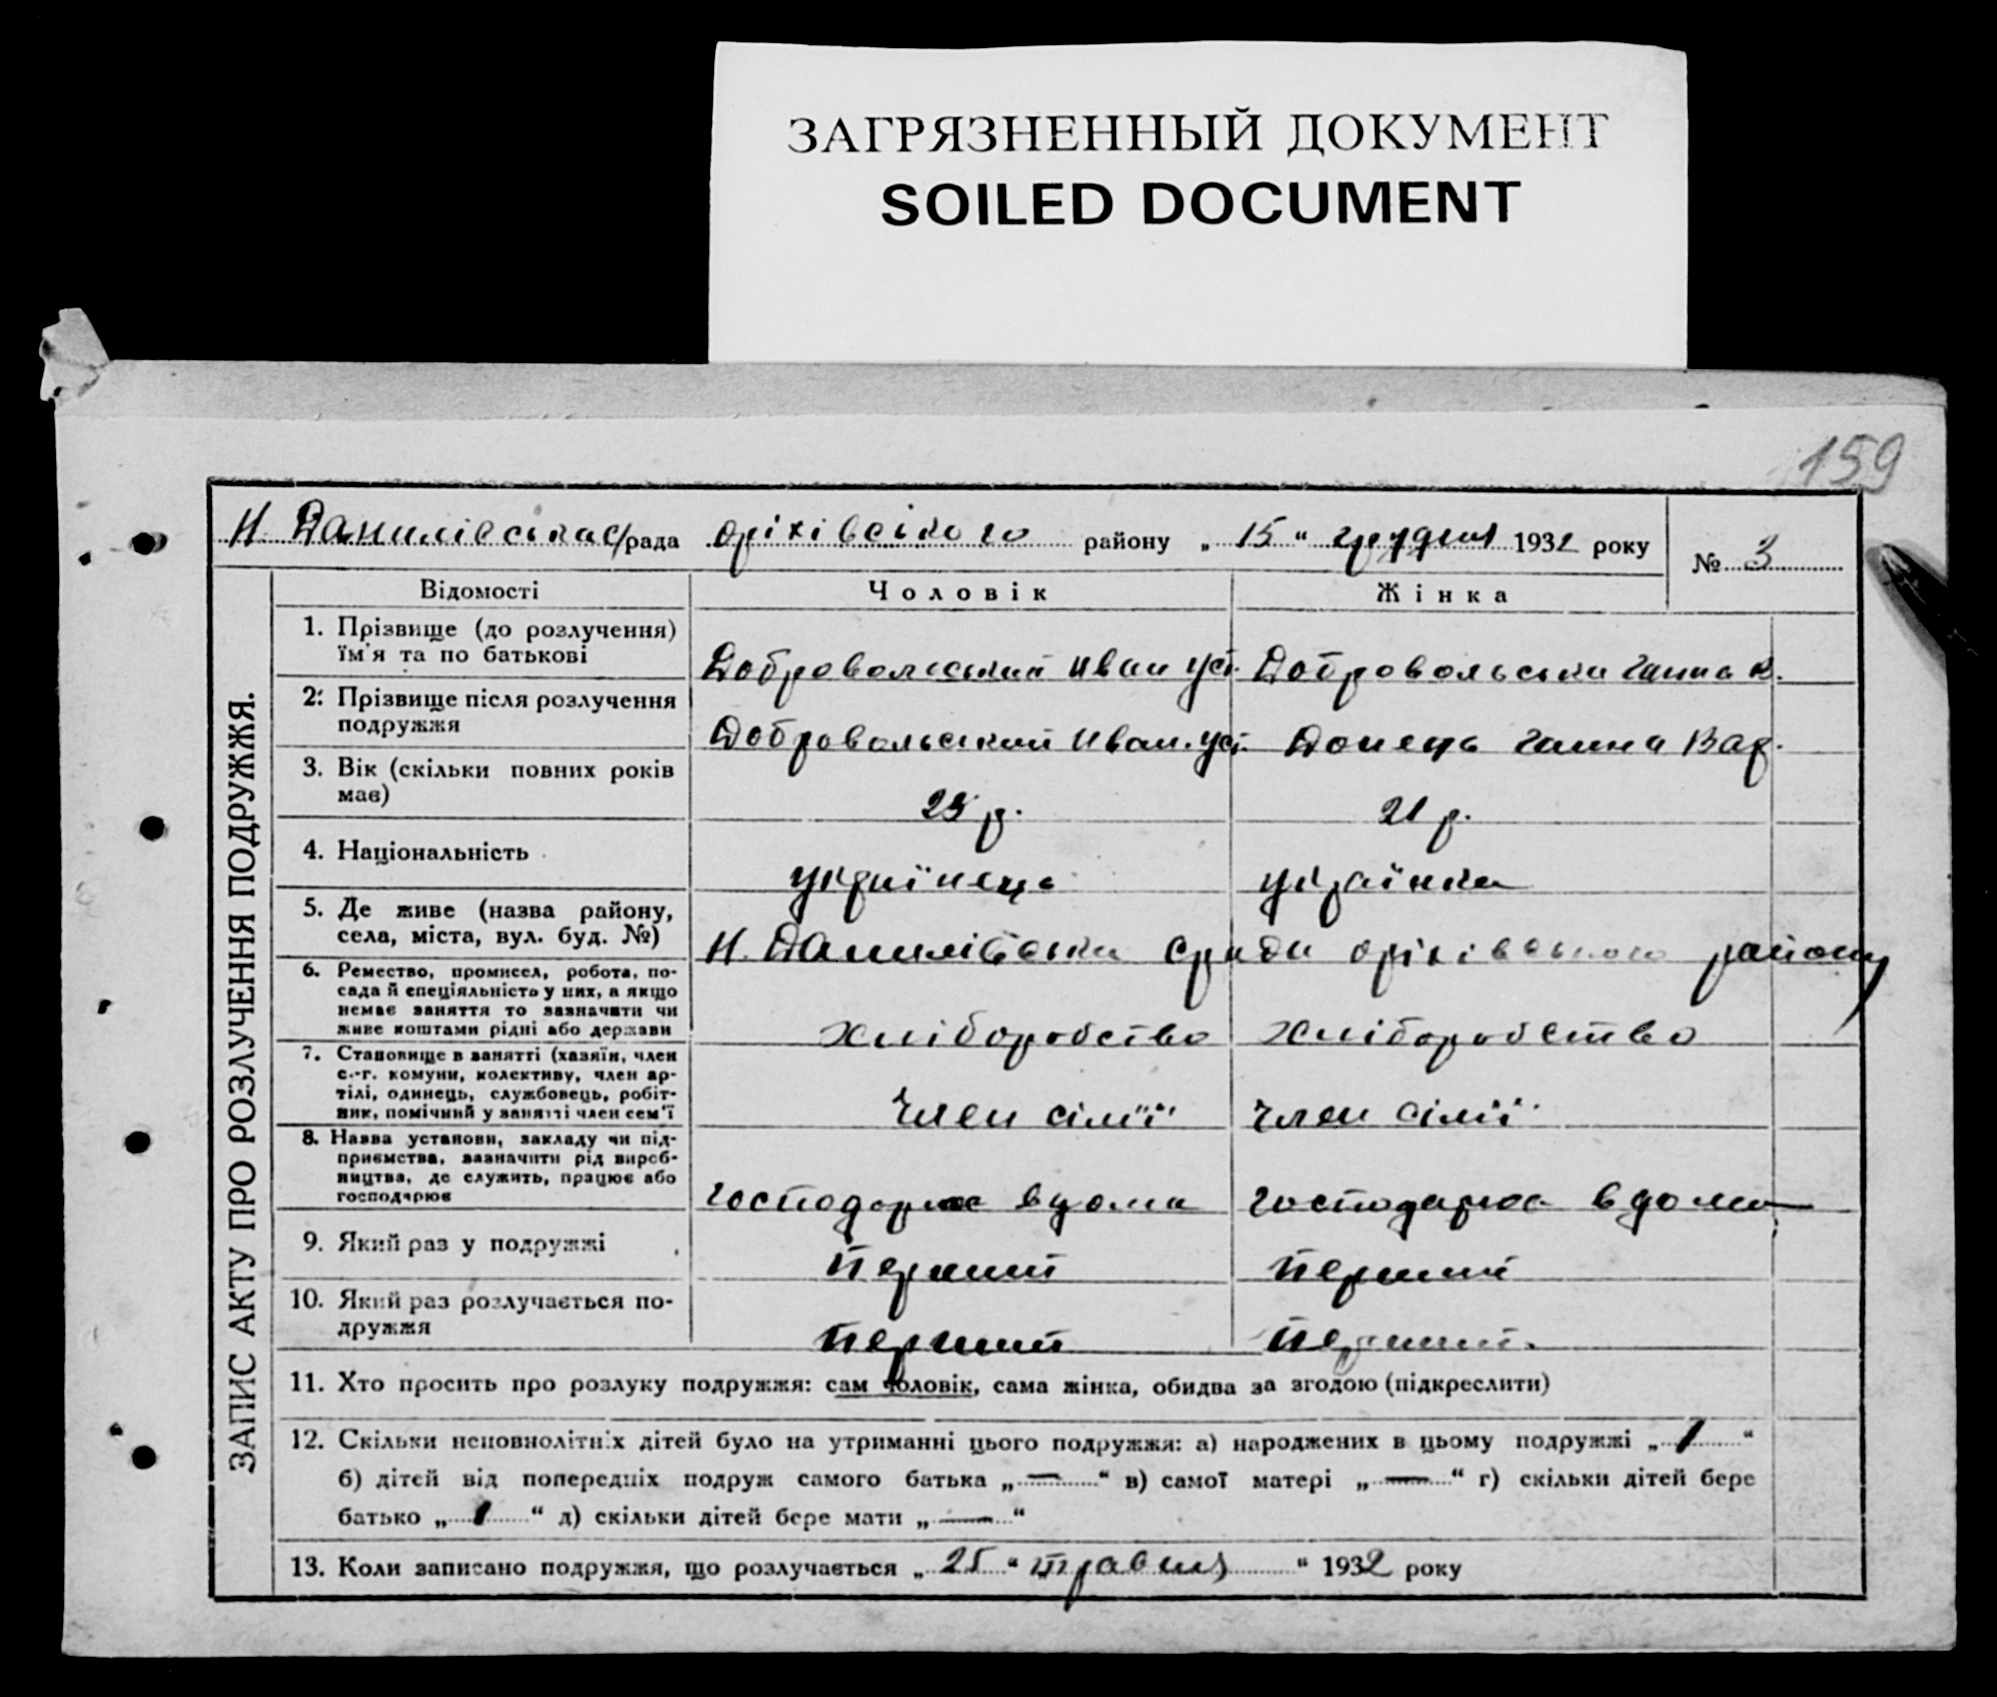 ЗАГРЯЗНЕННЫЙ ДОКУМЕНТ
SOILED DOCUMENT
159
Н. Данилівська с/рада оріхівського району „ 15 “ грудня 1932 року № 3
ЗАПИС АКТУ ПРО РОЗЛУЧЕННЯ ПОДРУЖЖЯ.
Відомості Чоловік Жінка
1. Прізвище (до розлучення)
їм'я та по батькові
Добровольський Иван Уст. Добровольська Ганна В.
2. Прізвище після розлучення
подружжя
Добровольский Иван. Уст. Донець Ганна Вар.
3. Вік (скільки повних років
має)
25 р. 21 р.
4. Національність
українець українка
5. Де живе (назва району,
села, міста, вул. буд. №)
Н. Данилівська сради оріхівського району
6. Ремество, промисел, робота, по-
сада й спеціяльність у них, а якщо
немає заняття то зазначити чи
живе коштами рідні або держави
хліборобство хліборобство
7. Становище в занятті (хазяїн, член
с.-г. комуни, колективу, член ар-
тілі, одинець, службовець, робіт-
ник, помічний у занятті член сем'ї
член сімїї член сімїї
8. Назва установи, закладу чи під-
приємства, зазначити рід вироб-
ництва, де служить, працює або
господарює
господарює вдома господарює вдома
9. Який раз у подружжі
перший перший
10. Який раз розлучається по-
дружжя
перший перший.
11. Хто просить про розлуку подружжя: сам чоловік, сама жінка, обидва за згодою (підкреслити)
12. Скільки неповнолітніх дітей було на утриманні цього подружжя: а) народжених в цьому подружжі „ 1 “
б) дітей від попередніх подруж самого батька „ — “ в) самої матері „ — “ г) скільки дітей бере
батько „ 1 “ д) скільки дітей бере мати „ — “
13. Коли записано подружжя, що розлучається „ 25 “ травня “ 1932 року